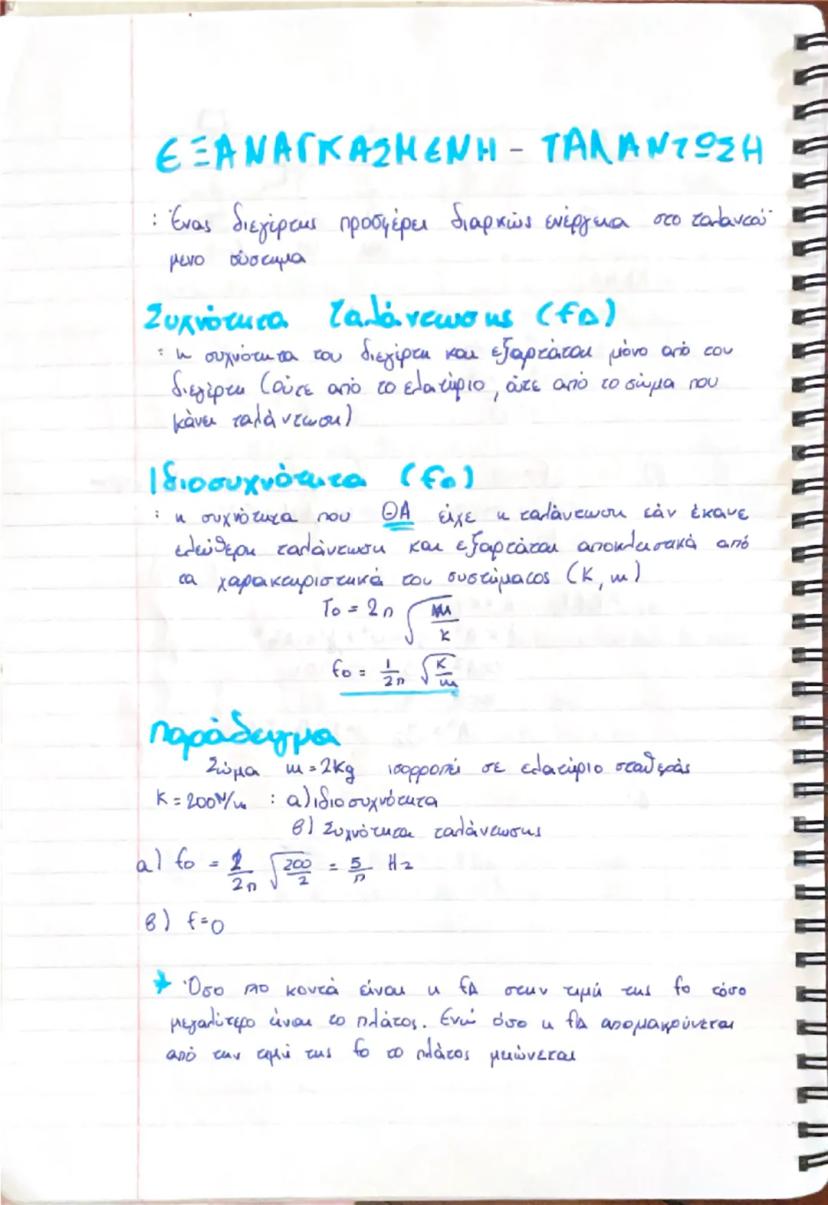 ΕΞΑΝΑΓΚΑΣΜΕΝΗ - ΤΑΛΑΝΤΩΣΗ
: Ένας διεγέρτης προσφέρει διαρκώς ενέργεια στο ταλαντού-
μενο σύστημα
Συχνότητα Ταλάντωσης (fΔ)
: η συχνότητα του διεγέρτη και εξαρτάται μόνο από τον
διεγέρτη (ούτε από το ελατήριο, ούτε από το σώμα που
κάνει ταλάντωση)
Ιδιοσυχνότητα (fο)
: η συχνότητα που ΘΑ είχε η ταλάντωση εάν έκανε
ελεύθερη ταλάντωση και εξαρτάται αποκλειστικά από
τα χαρακτηριστικά του συστήματος (K, m)
Το = 2π √(m/K)
fο = 1/2π √(K/m)
Παράδειγμα
Σώμα m = 2Kg ισορροπεί σε ελατήριο σταθεράς
K = 200N/m : α) ιδιοσυχνότητα
β) Συχνότητα ταλάντωσης
α) fο = 1/2π √(200/2) = 5/π Hz
β) f=0
→ Όσο πιο κοντά είναι η fΔ στην τιμή της fο τόσο
μεγαλύτερο είναι το πλάτος. Ενώ όσο η fΔ απομακρύνεται
από την τιμή της fο το πλάτος μειώνεται